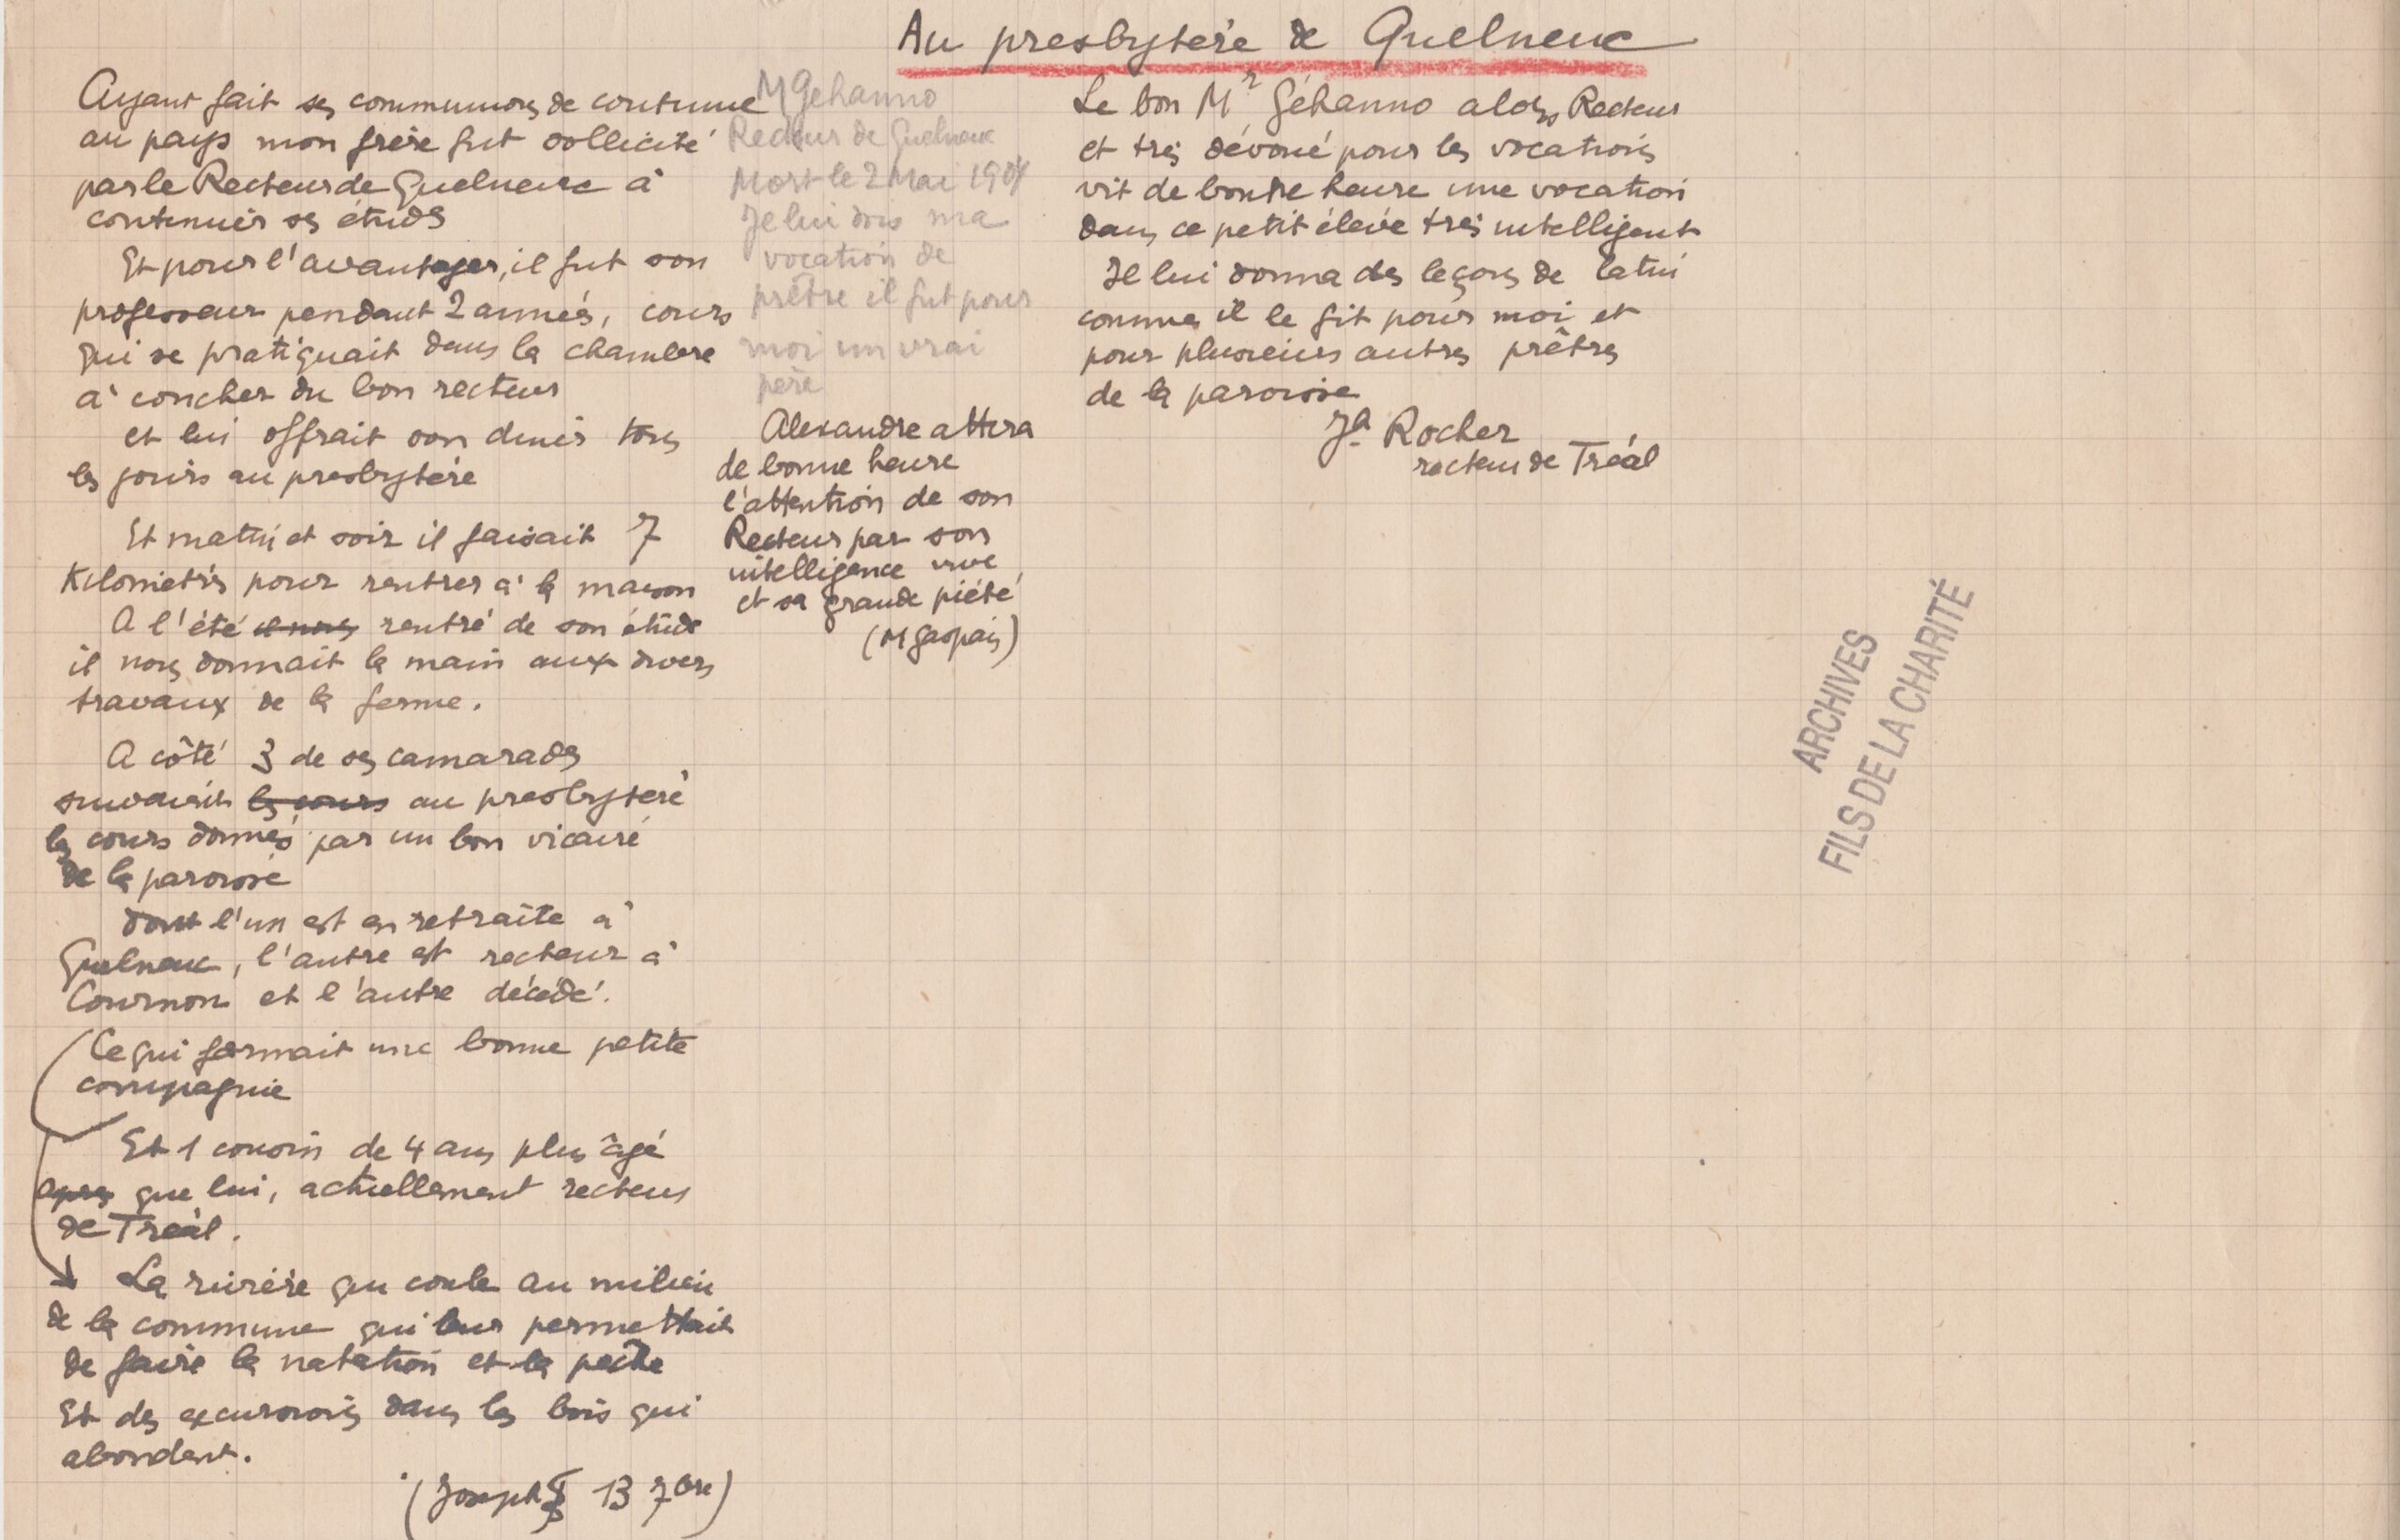 Au presbytère de Quelneuc
Ayant fait ses communions de coutume
au pays mon frère fut sollicité
par le Recteur de Quelneuc à
continuer ses études
Et pour l'avantager, il fut son
professeur pendant 2 années, cours
qui se pratiquait dans la chambre
à coucher du bon recteur
et lui offrait son diner tous
les jours au presbytère
Et matin et soir il faisait 7
Kilomètres pour rentrer à la maison
A l'été il nous rentré de son étude
il nous donnait la main aux divers
travaux de la ferme.
A côté 3 de ses camarades
suivaient les cours au presbytère
les cours donnés par un bon vicaire
de la paroisse
dont l'un est en retraite à
Quelneuc, l'autre est recteur à
Cournon et l'autre décédé.
Ce qui formait une bonne petite
compagnie
Et 1 cousin de 4 ans plus âgé
après que lui, actuellement recteur
de Tréal.
La rivière qui coule au milieu
de la commune qui leur permettait
de faire la natation et la pêche
Et des excursions dans les bois qui
abondent.
(Joseph 13 7bre)
M Gehanno
Recteur de Quelneuc
Mort le 2 Mai 1904
Je lui dois ma
vocation de
prêtre il fut pour
moi un vrai
père
Alexandre attira
de bonne heure
l'attention de son
Recteur par son
intelligence vive
et sa grande piété
(M Gaspais)
Le bon Mr Géhanno alors Recteur
et très dévoué pour les vocations
vit de bonne heure une vocation
dans ce petit élève très intelligent
Il lui donna des leçons de latin
comme il le fit pour moi et
pour plusieurs autres prêtres
de la paroisse
Jh Rocher
recteur de Tréal
ARCHIVES
FILS DE LA CHARITÉ